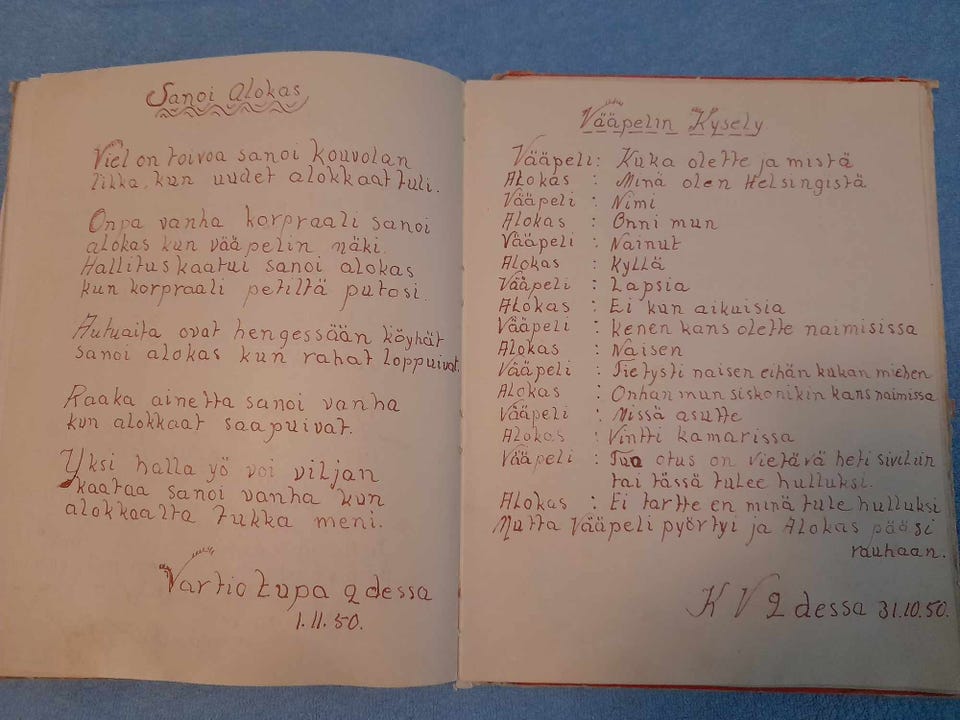 Sanoi Alokas
Viel on toivoa sanoi Kouvolan
likka, kun uudet alokkaat tuli.
Onpa vanha korpraali sanoi
alokas kun vääpelin näki.
Hallitus kaatui sanoi alokas
kun korpraali petiltä putosi.
Autuaita ovat hengessään köyhät
sanoi alokas kun rahat loppuivat.
Raaka ainetta sanoi vanha
kun alokkaat saapuivat.
Yksi halla yö voi viljan
kaataa sanoi vanha kun
alokkaalta tukka meni.
Vartio tupa 2 dessa
1.11.50.
Vääpelin Kysely
Vääpeli: Kuka olette ja mistä
Alokas : Minä olen Helsingistä
Vääpeli : Nimi
Alokas : Onni mun
Vääpeli : Nainut
Alokas : Kyllä
Vääpeli : Lapsia
Alokas : Ei kun aikuisia
Vääpeli : kenen kans olette naimisissa
Alokas : Naisen
Vääpeli : Tietysti naisen eihän kukan miehen
Alokas : Onhan mun siskonikin kans naimissa
Vääpeli : Missä asutte
Alokas : Vintti kamarissa
Vääpeli : Tua otus on vietävä heti siviliin
tai tässä tulee hulluksi.
Alokas : Ei tartte en minä tule hulluksi
Mutta Vääpeli pyörtyi ja Alokas pääsi
rauhaan.
K V 2 dessa 31.10.50.